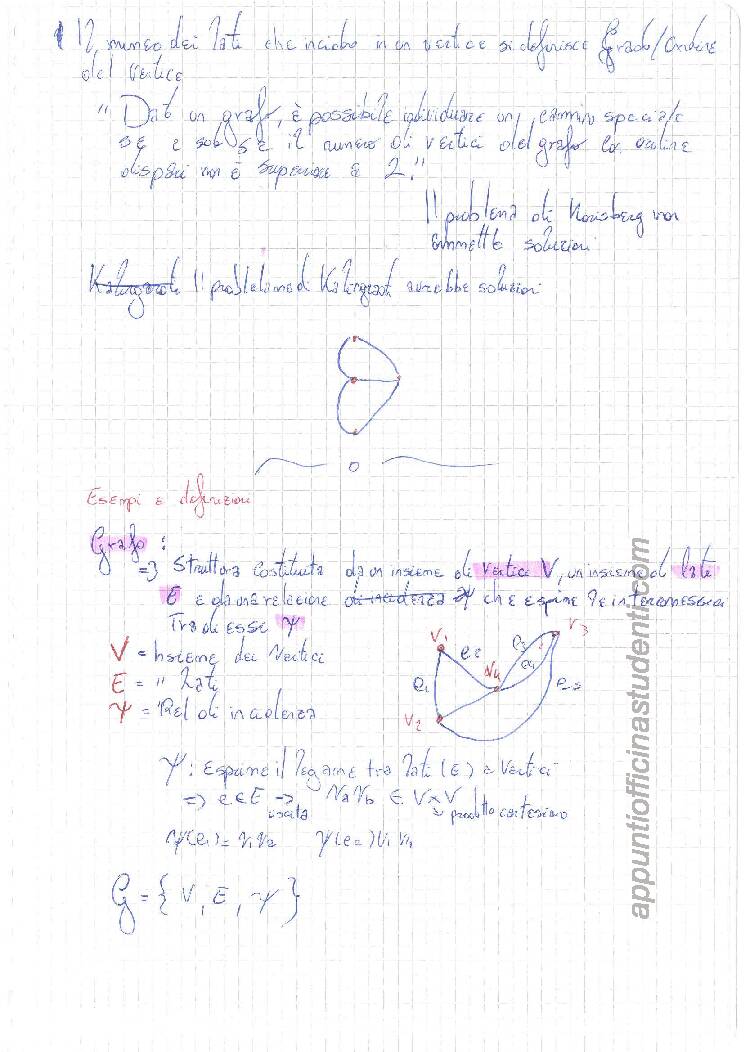 Il numero dei lati che incidono in un vertice si definisce Grado/Ordine
del vertice
"Dato un grafo, è possibile individuare un cammino speciale
se e solo se il numero di vertici del grafo con ordine
dispari non è superiore a 2."
Il problema di Konisberg non
ammette soluzioni
Il problema di avrebbe soluzioni
Esempi e definizioni
Grafo :
=> Struttura costituita da un insieme di vertici V, un insieme di lati
E e da una relazione di incidenza ψ che esprime le interconnessioni
Tra di esse ψ
V = Insieme dei Vertici
E = " Lati
ψ = Rel di incidenza
V1 e2 V4 e3 e4 V3
e1 e5
V2
ψ : Esprime il legame tra lati (E) e Vertici
=> e ∈ E → Va Vb ∈ V x V
prodotto cartesiano
ψ(e1) = V1 V2 ψ(e2) V1 V4
G = { V, E, ψ }
appuntiofficinastudenti.com